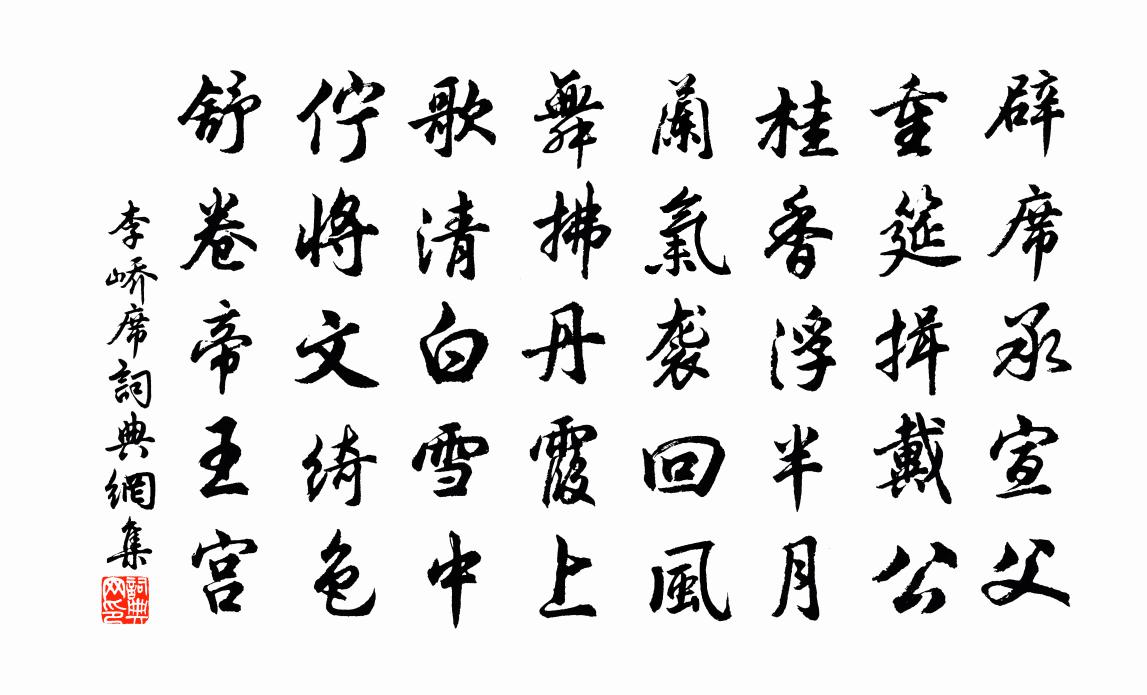 辟席承宣父
重筵揖戴公
桂香浮半月
蘭氣襲回風
舞拂丹霞上
歌清白雪中
佇將文綺色
舒卷帝王宫
李嶠席詞典網集
詞典網印